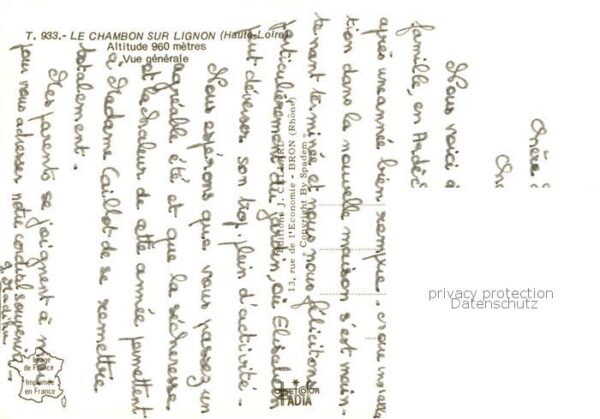 T. 933.- LE CHAMBON SUR LIGNON (Haute-Loire)
Altitude 960 mètres
Vue générale
Chère
Che
Nous voici
famille, en Ardèc
après une année bien remplie.
tion dans la nouvelle maison s'est main-
tenant terminée et nous nous félicitons
particulièrement du jardin, où Elisabeth
peut déverser son trop plein d'activité.
Nous espérons que vous passez un
agréable été et que la sécheresse
et la chaleur de cette année permettent
à Madame Caillot de se remettre
totalement.
Mes parents se joignent à moi
pour vous adresser notre cordial souvenir
Editions J.
13, rue de l'Economie - BRON (Rhône)
Copyright By Spadem
privacy protection
Datenschutz
Image
de France
Imprimée
en France